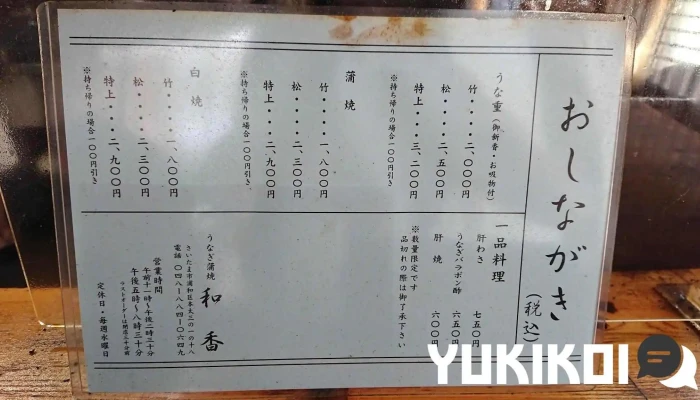 おしながき（税込）
うな重（御新香・お吸物付）
竹・・・・・二、〇〇〇円
松・・・・・二、五〇〇円
特上・・・・三、二〇〇円
※持ち帰りの場合一〇〇円引き
蒲焼
竹・・・・・一、八〇〇円
松・・・・・二、三〇〇円
特上・・・・二、九〇〇円
※持ち帰りの場合一〇〇円引き
白焼
竹・・・・・一、八〇〇円
松・・・・・二、三〇〇円
特上・・・・二、九〇〇円
※持ち帰りの場合一〇〇円引き
一品料理
肝わさ 七五〇円
うなぎバラポン酢 六五〇円
肝焼 六〇〇円
※数量限定です
品切れの際は御了承下さい
うなぎ蒲焼 和香
さいたま市浦和区本太三の一の十八
電話 〇四八ー八八四ー〇六四九
営業時間
午前十一時〜午後二時三十分
午後五時〜八時三十分
ラストオーダーは閉店三十分前
定休日・毎週水曜日
YUKIKOI